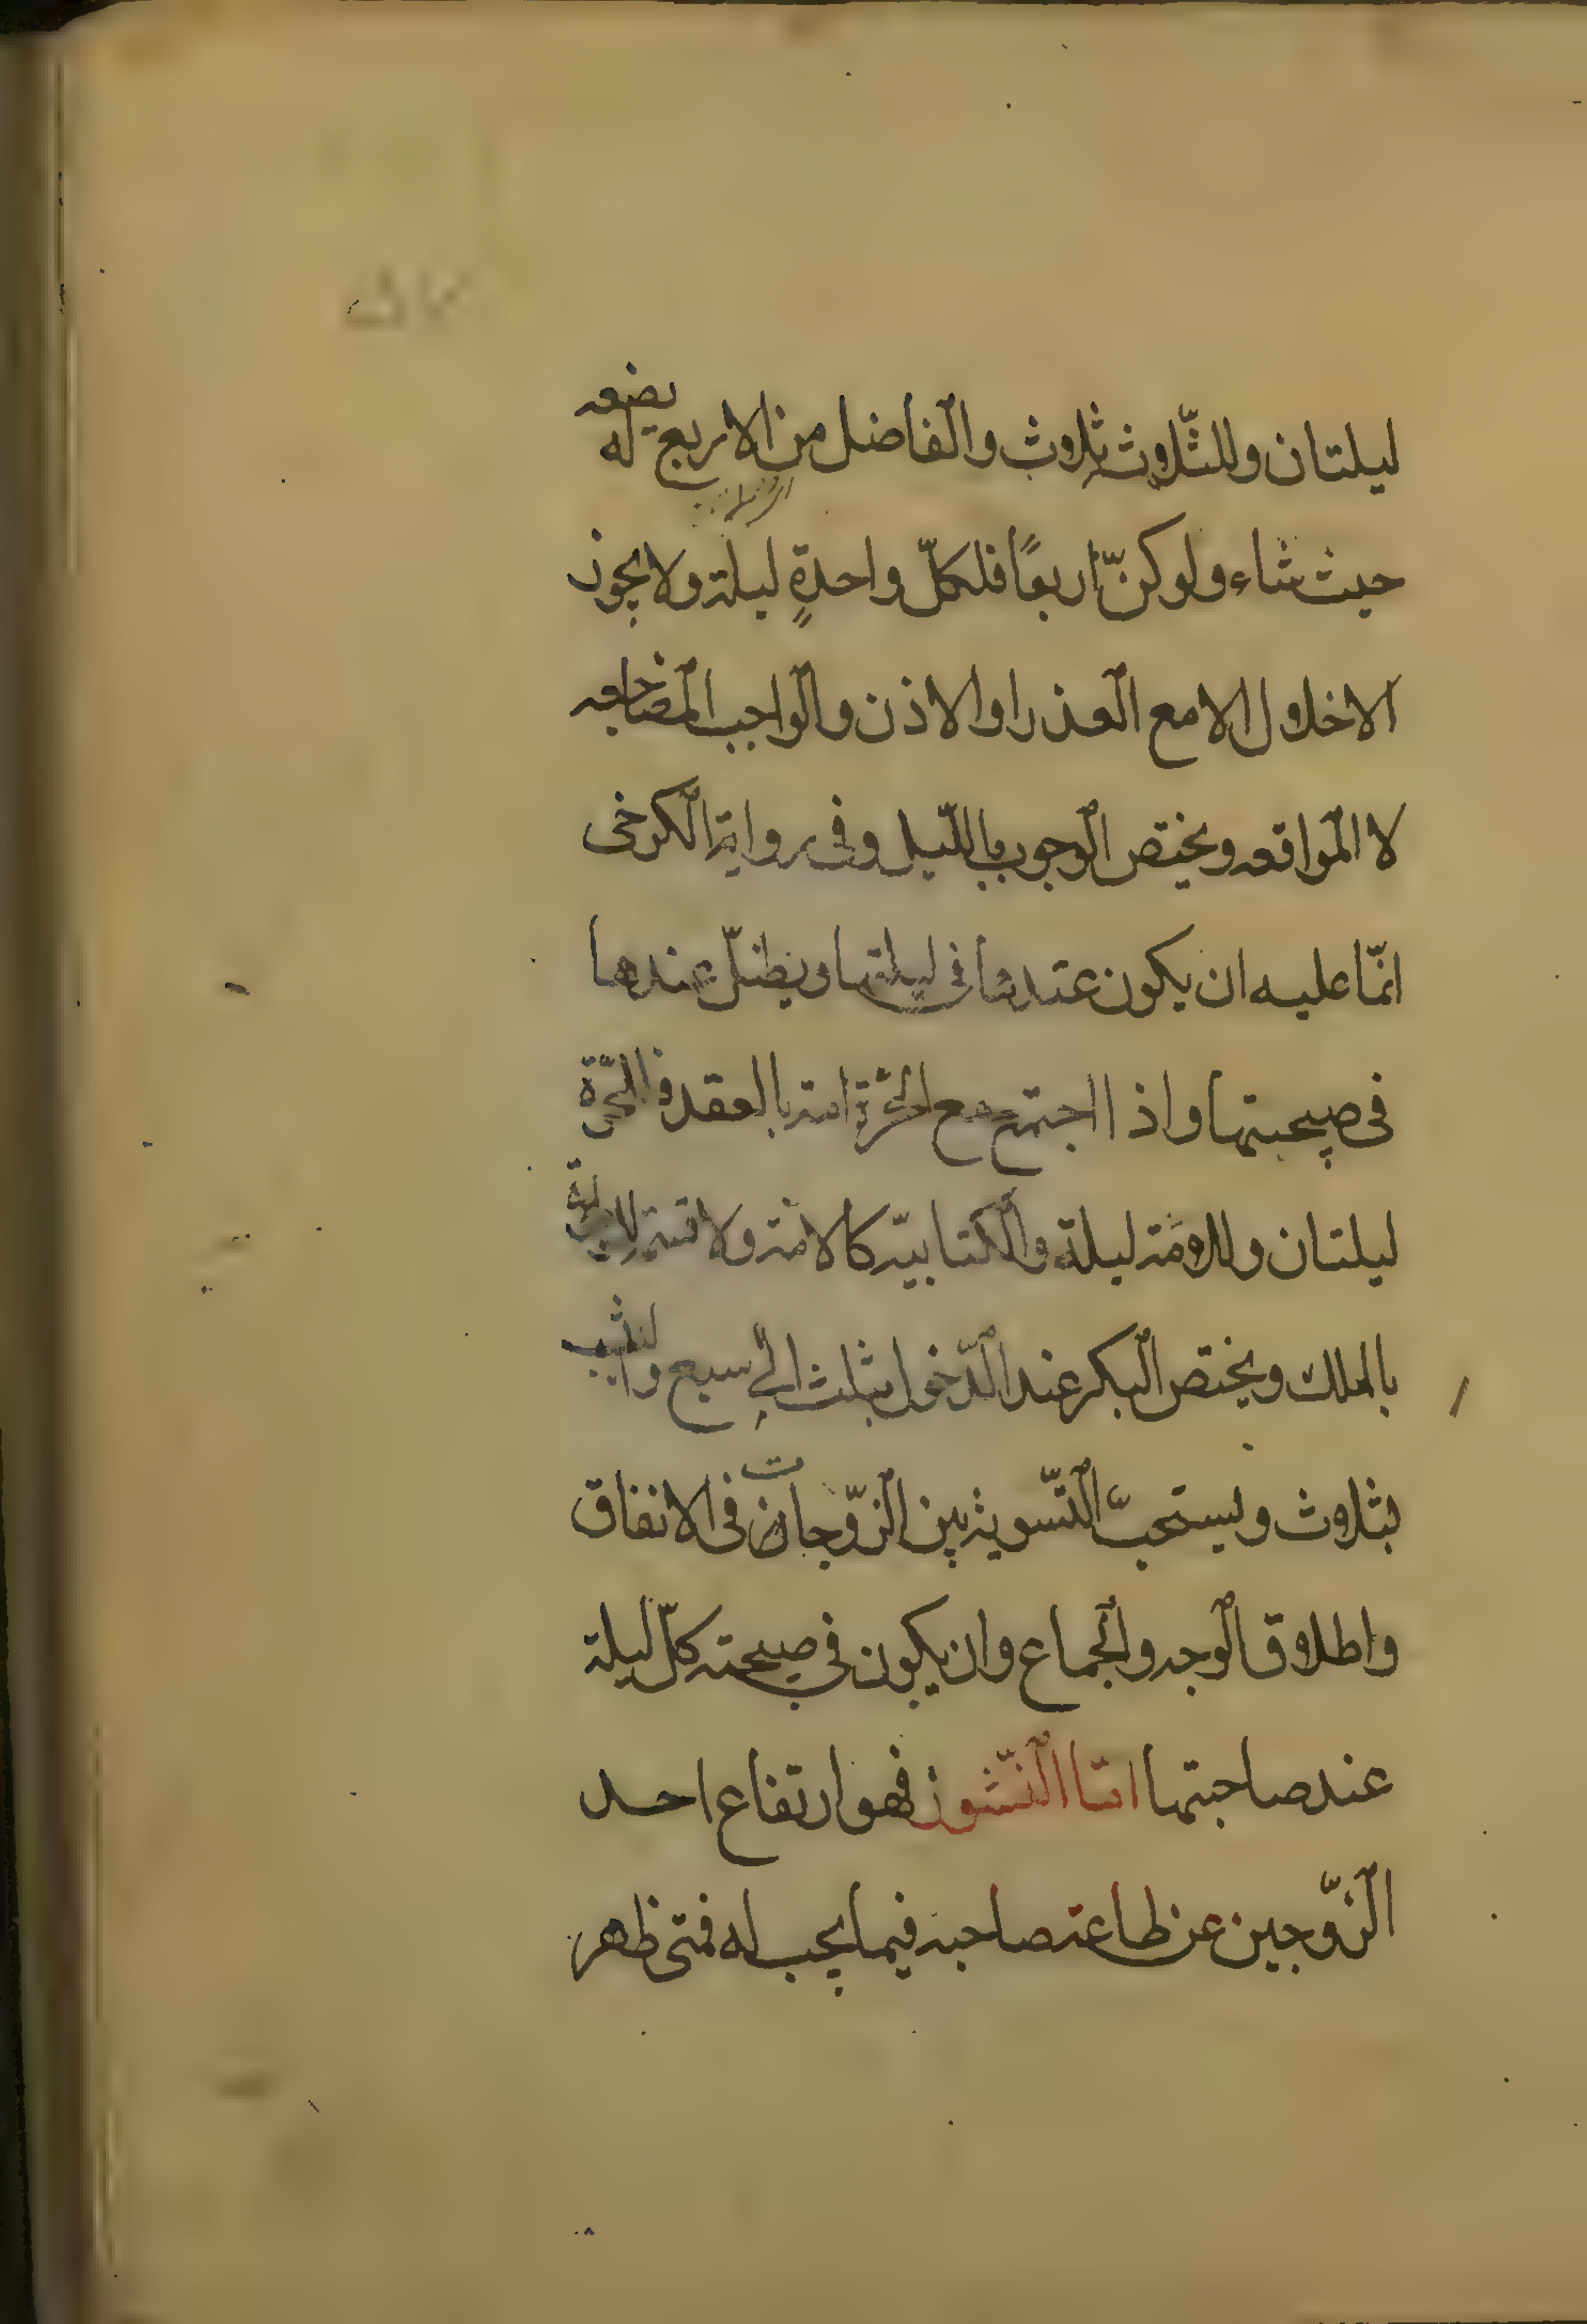 ليلتان وللثّلاث ثلاث والفاضل من الاربع يضعه له
حيث شاء ولو كنّ اربعًا فلكلّ واحدةٍ ليلة ولا يجوز
الاخلال الا مع العذر او الاذن والواجب المضاجعه
لا المواقعه ويختص الوجوب بالليّل وفى رواية الكرخى
انمّا عليه ان يكون عندها فى ليلتها ويظلّ عندها
فى صبيحتها واذا اجتمع مع الحُرّة امة بالعقد فللحُرّة
ليلتان وللامة ليلة والكتابيّه كالامة ولا قسمة
بالملك ويختص البكر عند الدّخول بثلث الى سبع والثيب
بثلاث ويستحبّ التّسوية بين الزّوجات فى الانفاق
واطلاق الوجه والجماع وان يكون فى صبيحة كلّ ليلة
عند صاحبتها امّا النّشوز فهو ارتفاع احد
الزّوجين عن طاعة صاحبه فيما يجب له فمتى ظهر